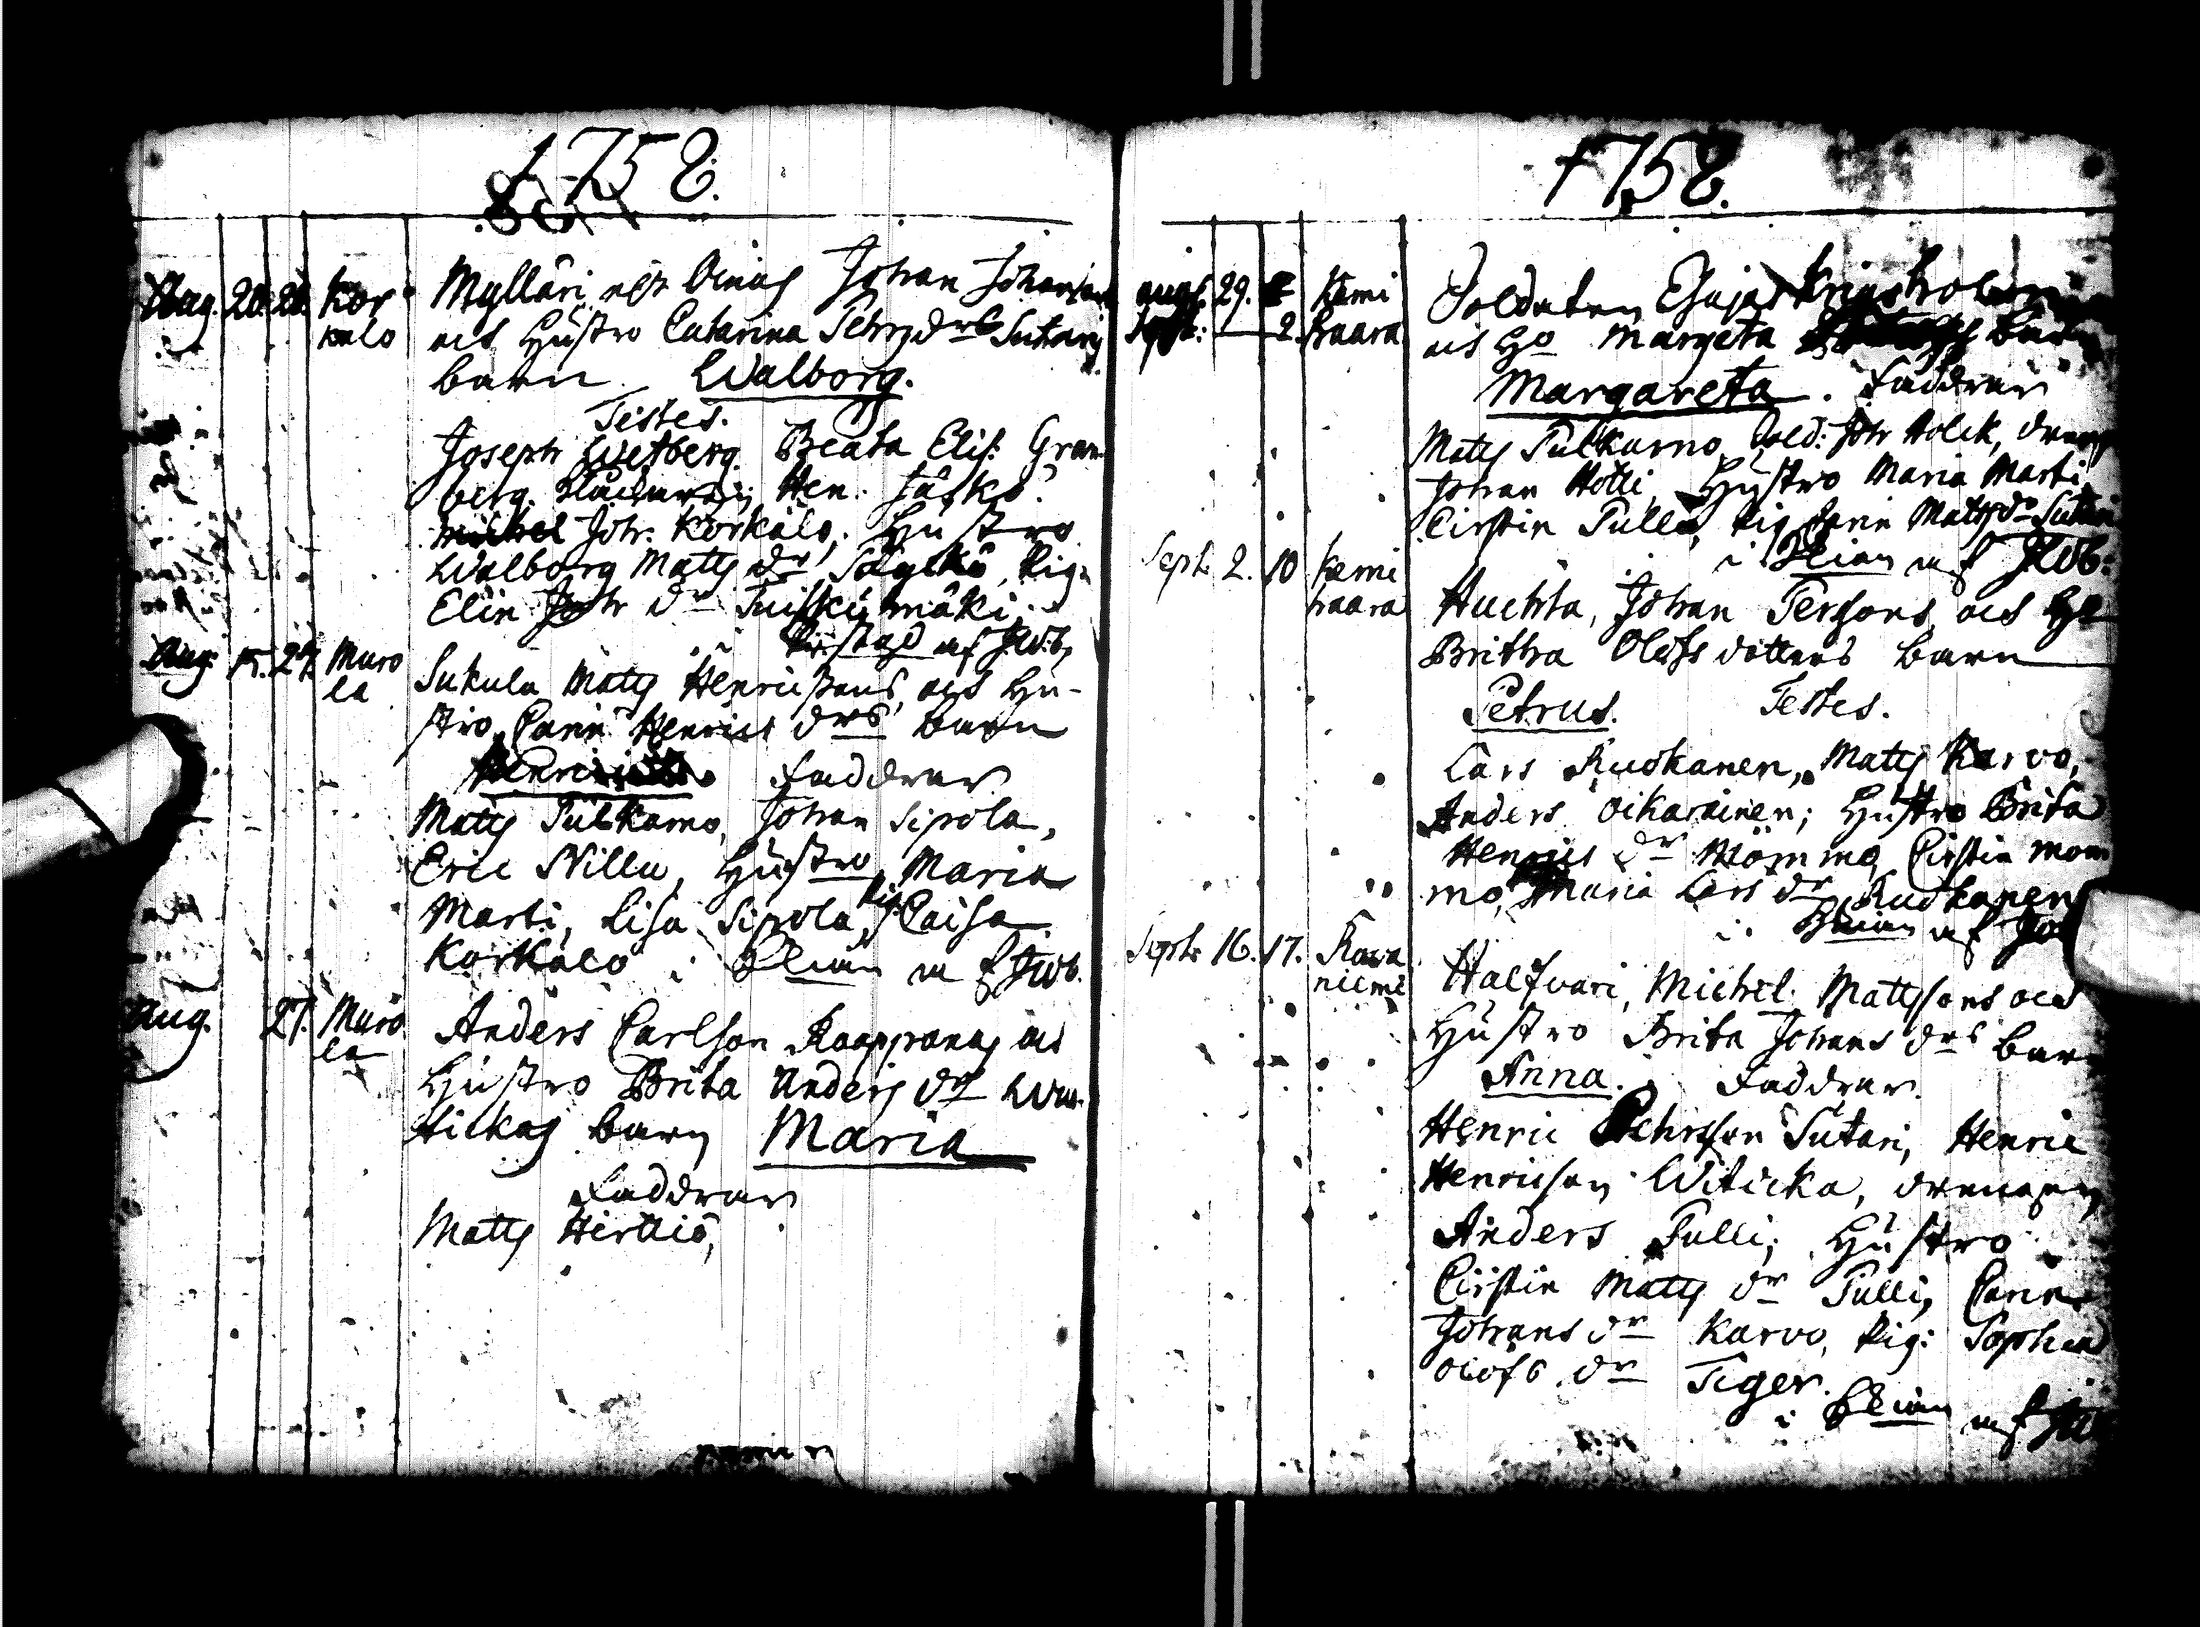 1758.
Aug. 20. 20. Kor
kalo
Mylläri Johan Johans
och Hustro Catarina Pehrsdrs Sutaris
barn Walborg.
Testes.
Joseph Wetberg. Beata Elis: Gran
berg. Hen. Jääskö.
Michel Joh. Korkalo, Hustro
Walborg Matts dr Pöykkö, Pig.
Elin Joh dr Tuiskumäki.
af JWb.
Aug. 27. Muro
la
Sukula Matts Henricssons, och Hu-
stro Carin Henrics drs barn
Henric Faddrar
Matts Pulkamo, Johan Sipola,
Eric Nilla, Hustro Maria
Marti, Lisa Sipola, Pig. Caisa
Korkalo i Kkian af JWb.
Aug. 27. Muro
la
Anders Carlson Kaappanas och
Hustro Brita Anders dr
tickas barn Maria
Faddrar
Matts Hirttiö,
1758.
Aug. 29. Kemi
Sept: 2. haara
Soldaten Esajas
och Ho Margeta barn
Margareta. Faddrar
Matts Pulkamo, Sold: Joh Holck, dreng
Johan Hotti, Hustro Maria Marti,
Cirstin Pulli, Pig Carin Matts dr Sutari
i Kkian af JWb:
Sept. 2. 10 Kemi
haara
Huchta, Johan Persons och Ho
Britha Olofs dotters barn
Petrus. Testes.
Lars Ruokanen, Matts Karvo,
Anders Oikarainen; Hustro Brita
Henrics dr Mömmo, Cirstin Möm
mo, Maria Lars dr Ruokanen
i Kkian af
Sept. 16. 17. Rova
niemi
Halfvari, Michel Mattssons och
Hustro Brita Johans drs barn
Anna. Faddrar.
Henric Pehrsson Sutari, Henric
Henricson Witicka, drengen
Anders Pulli; Hustro
Cirstin Matts dr Pulli, Carin
Johans dr Karvo, Pig: Sophia
Olofs dr Tiger.
i Kkian af